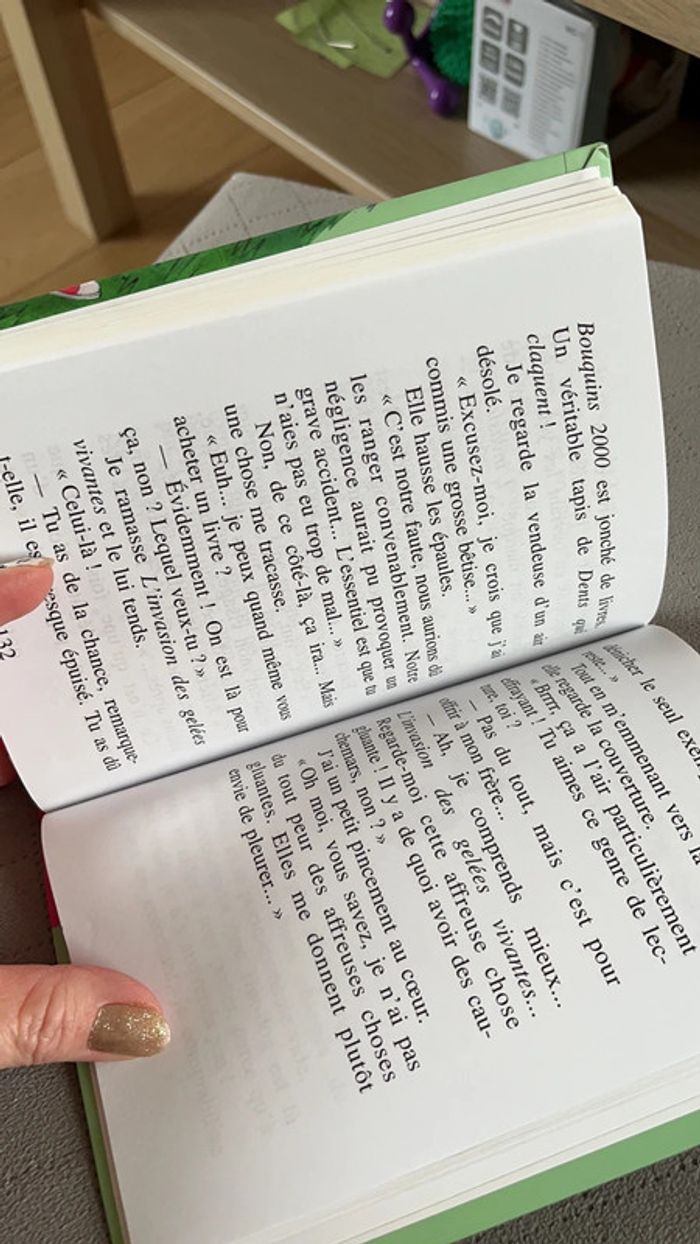 Bouquins 2000 est jonché de livres.
Un véritable tapis de Dents qui
claquent !
Je regarde la vendeuse d'un air
désolé.
« Excusez-moi, je crois que j'ai
commis une grosse bêtise... »
Elle hausse les épaules.
« C'est notre faute, nous aurions dû
les ranger convenablement. Notre
négligence aurait pu provoquer un
grave accident... L'essentiel est que tu
n'aies pas eu trop de mal... »
Non, de ce côté-là, ça ira... Mais
une chose me tracasse.
« Euh... je peux quand même vous
acheter un livre ?
— Évidemment ! On est là pour
ça, non ? Lequel veux-tu ? »
Je ramasse L'invasion des gelées
vivantes et le lui tends.
« Celui-là !
— Tu as de la chance, remarque-
t-elle, il es esque épuisé. Tu as dû
132
le seul
reste... »
Tout en m'emmenant vers
elle regarde la couverture.
« Brrr, ça a l'air particulièrement
effrayant ! Tu aimes ce genre de lec-
ture, toi ?
— Pas du tout, mais c'est pour
offrir à mon frère...
— Ah, je comprends mieux...
L'invasion des gelées vivantes...
Regarde-moi cette affreuse chose
gluante ! Il y a de quoi avoir des cau-
chemars, non ? »
J'ai un petit pincement au cœur.
« Oh moi, vous savez, je n'ai pas
du tout peur des affreuses choses
gluantes. Elles me donnent plutôt
envie de pleurer... »